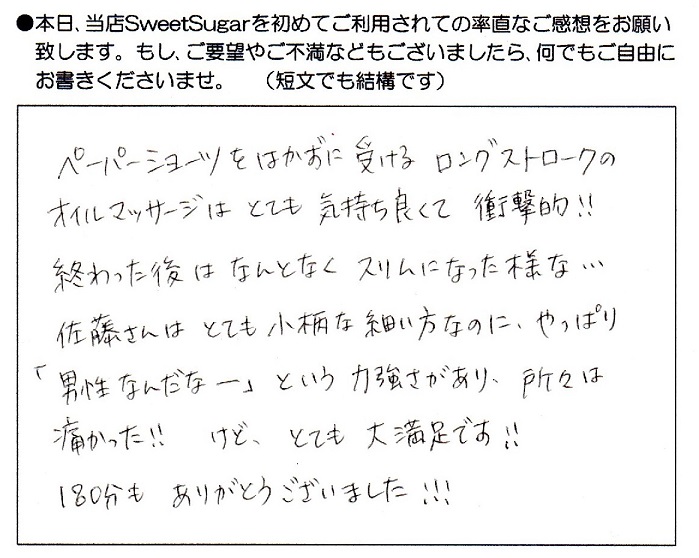 ●本日、当店SweetSugarを初めてご利用されての率直なご感想をお願い
致します。もし、ご要望やご不満などもございましたら、何でもご自由に
お書きくださいませ。　（短文でも結構です）
ペーパーショーツをはかずに受けるロングストロークの
オイルマッサージはとても気持ち良くて衝撃的!!
終わった後はなんとなくスリムになった様な…
佐藤さんはとても小柄な細い方なのに、やっぱり
「男性なんだなー」という力強さがあり、所々は
痛かった!!　けど、とても大満足です!!
180分もありがとうございました!!!